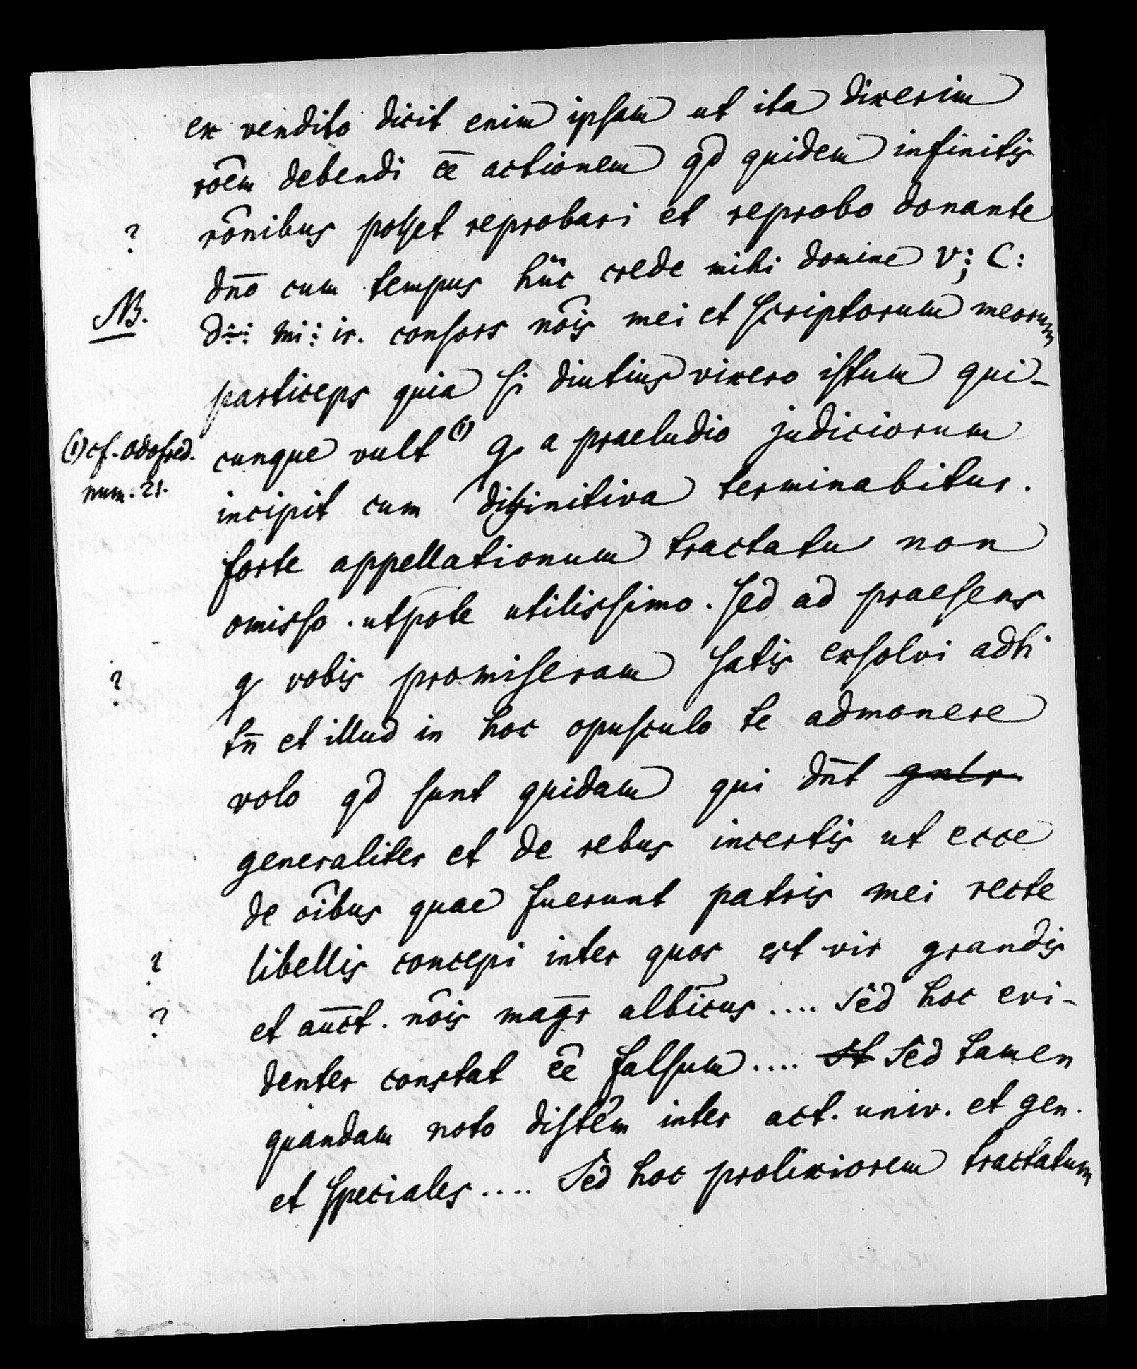 ex vendito dicit enim ipsam ut ita dixerim
rōem debendi ēē actionem qd quidem infinitis
? rōnibus posset reprobari et reprobo donante
dn̄o cum tempus hūc crede mihi domine V; C:
NB. d::: mi: ir. consors nōis mei et scriptorum meorum
particeps quia si diutius vixero istum qui-
(1) cf. odofred. num. 21.
cunque vult (1) q a praeludio judiciorum
incipit cum diffinitiva terminabitur.
forte appellationum tractatu non
omisso. utpote utilissimo. sed ad praesens
? q vobis promiseram satis exsolvi adhi
tn̄ et illud in hoc opusculo te admonere
volo qd sunt quidam qui dn̄t gnlr
generaliter et de rebus incertis ut ecce
de ōibus quae fuerunt patris mei recte
? libellis concepi inter quos est vir grandis
? et auct. nōis magr albicus .... Sed hoc evi-
denter constat ēē falsum .... st Sed tamen
quandam noto distēm inter act. univ. et gen.
et speciales .... Sed hoc prolixiorem tractatum